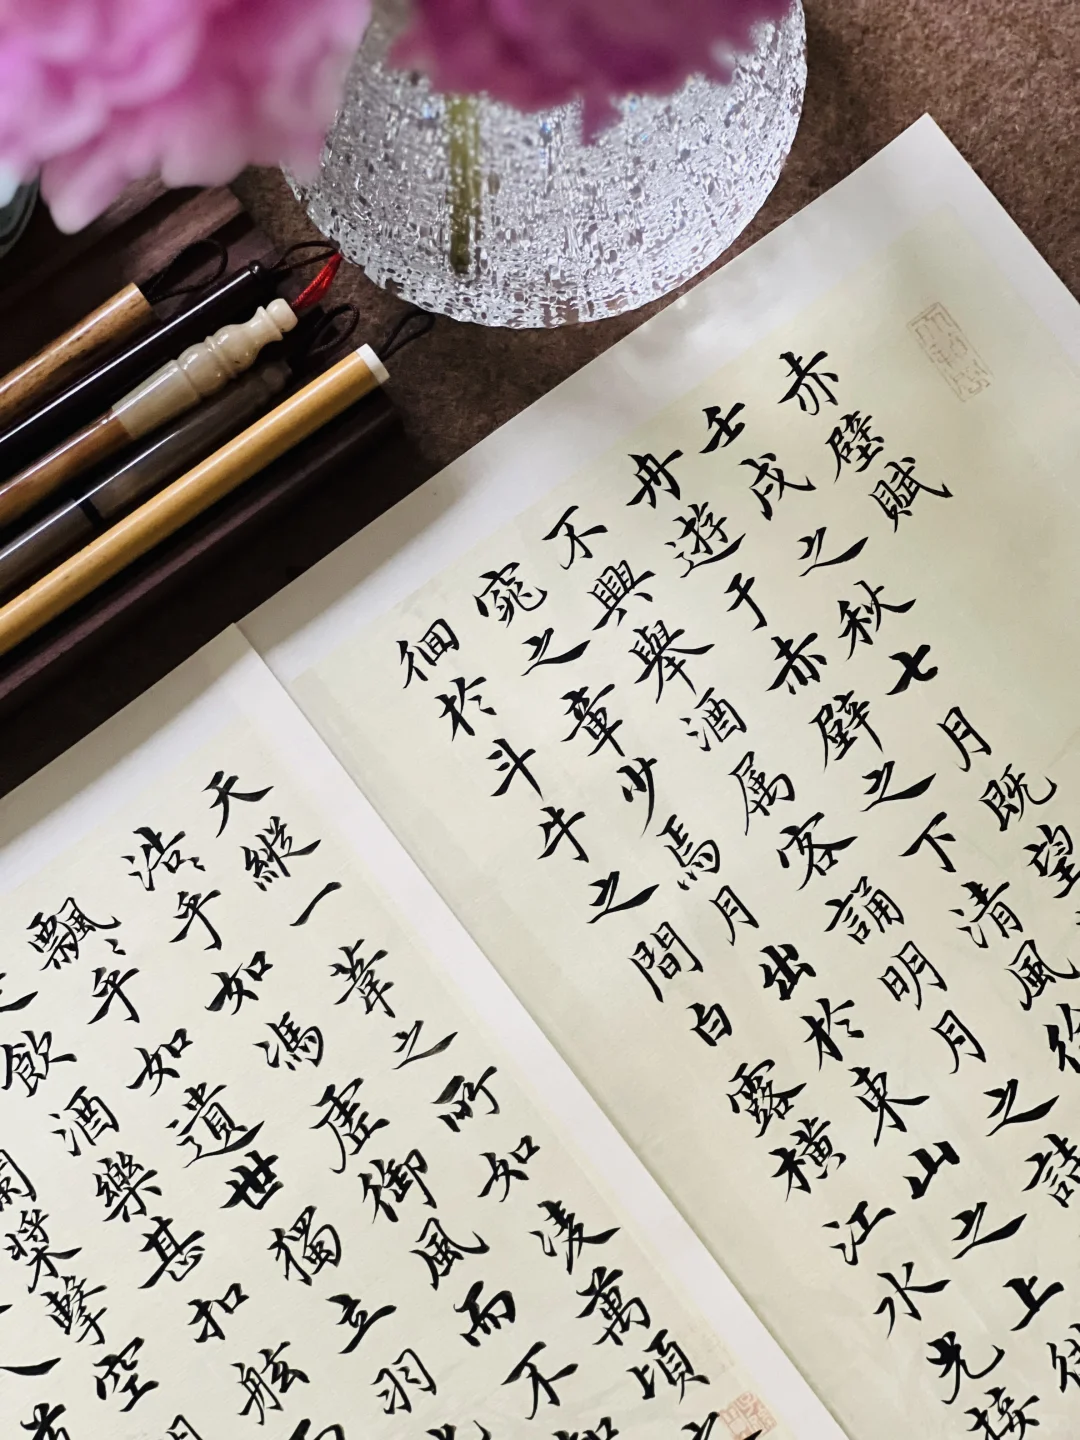 赤壁賦
壬戌之秋七月既望
舟遊于赤壁之下清風徐
不興舉酒属客誦明月之詩
窕之章少焉月出於東山之上徘
徊於斗牛之間白露橫江水光接
天縱一葦之所如凌萬頃之
浩〻乎如馮虛御風而不知
飄〻乎如遺世獨立羽
飲酒樂甚扣舷而
蘭槳擊空明